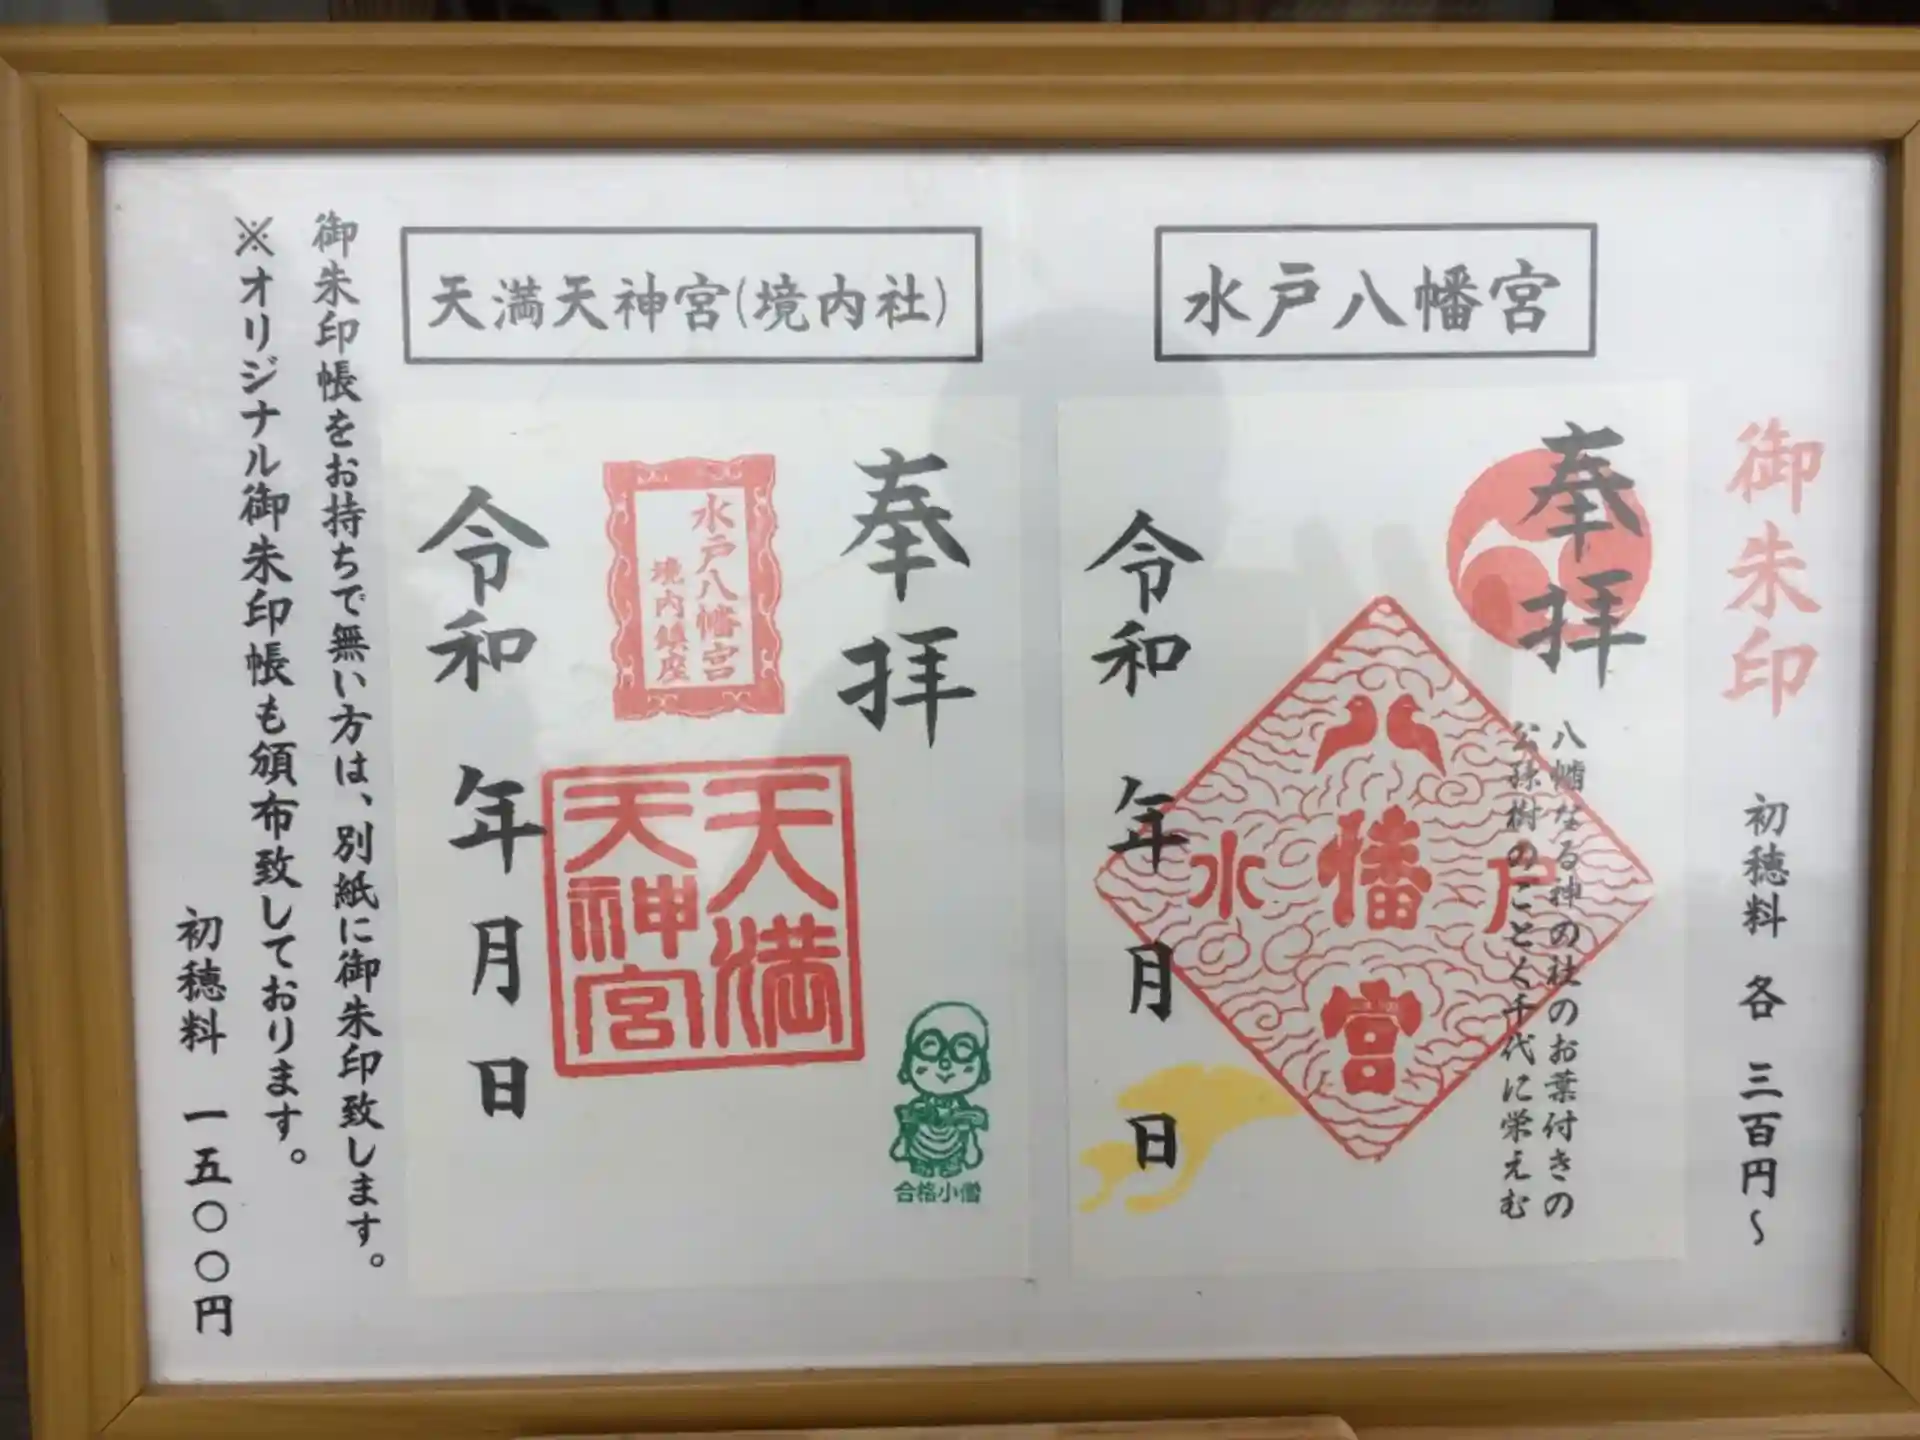 御朱印
初穂料 各 三百円〜
水戸八幡宮
奉拝
八幡なる神の社のお葉付きの
公孫樹のごとく千代に栄えむ
八幡宮
水戸
令和 年 月 日
天満天神宮(境内社)
奉拝
水戸八幡宮
境内鎮座
天満
天神宮
合格小僧
令和 年 月 日
御朱印帳をお持ちで無い方は、別紙に御朱印致します。
※オリジナル御朱印帳も頒布致しております。
初穂料 一五〇〇円